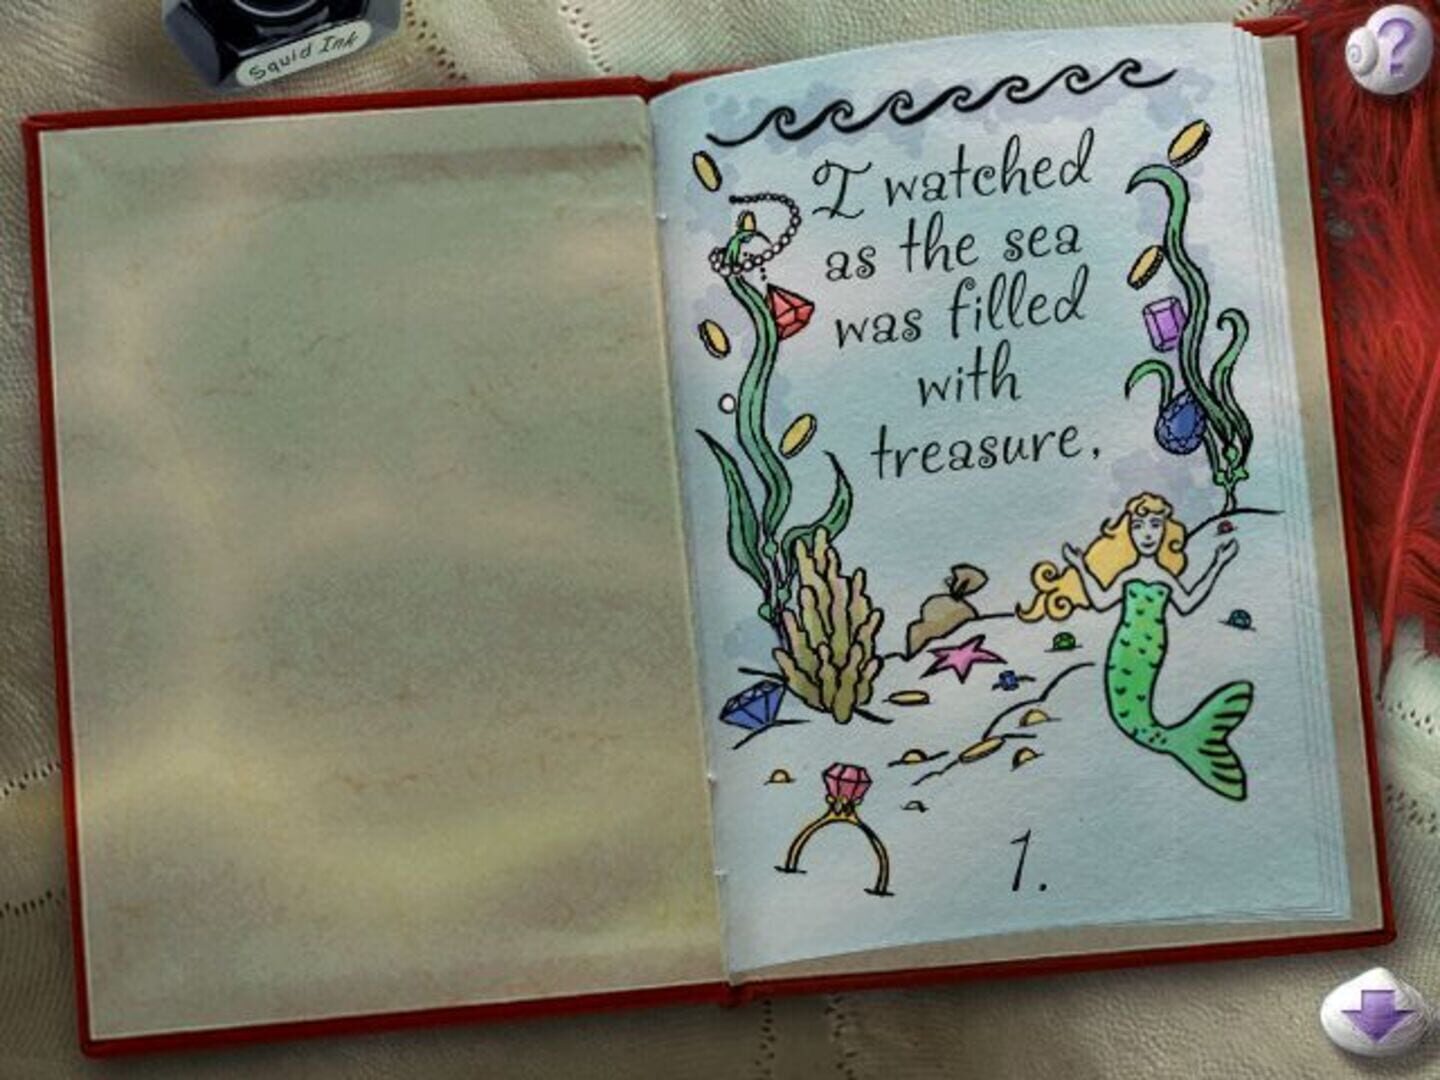 Squid Ink
?
I watched
as the sea
was filled
with
treasure,
1.